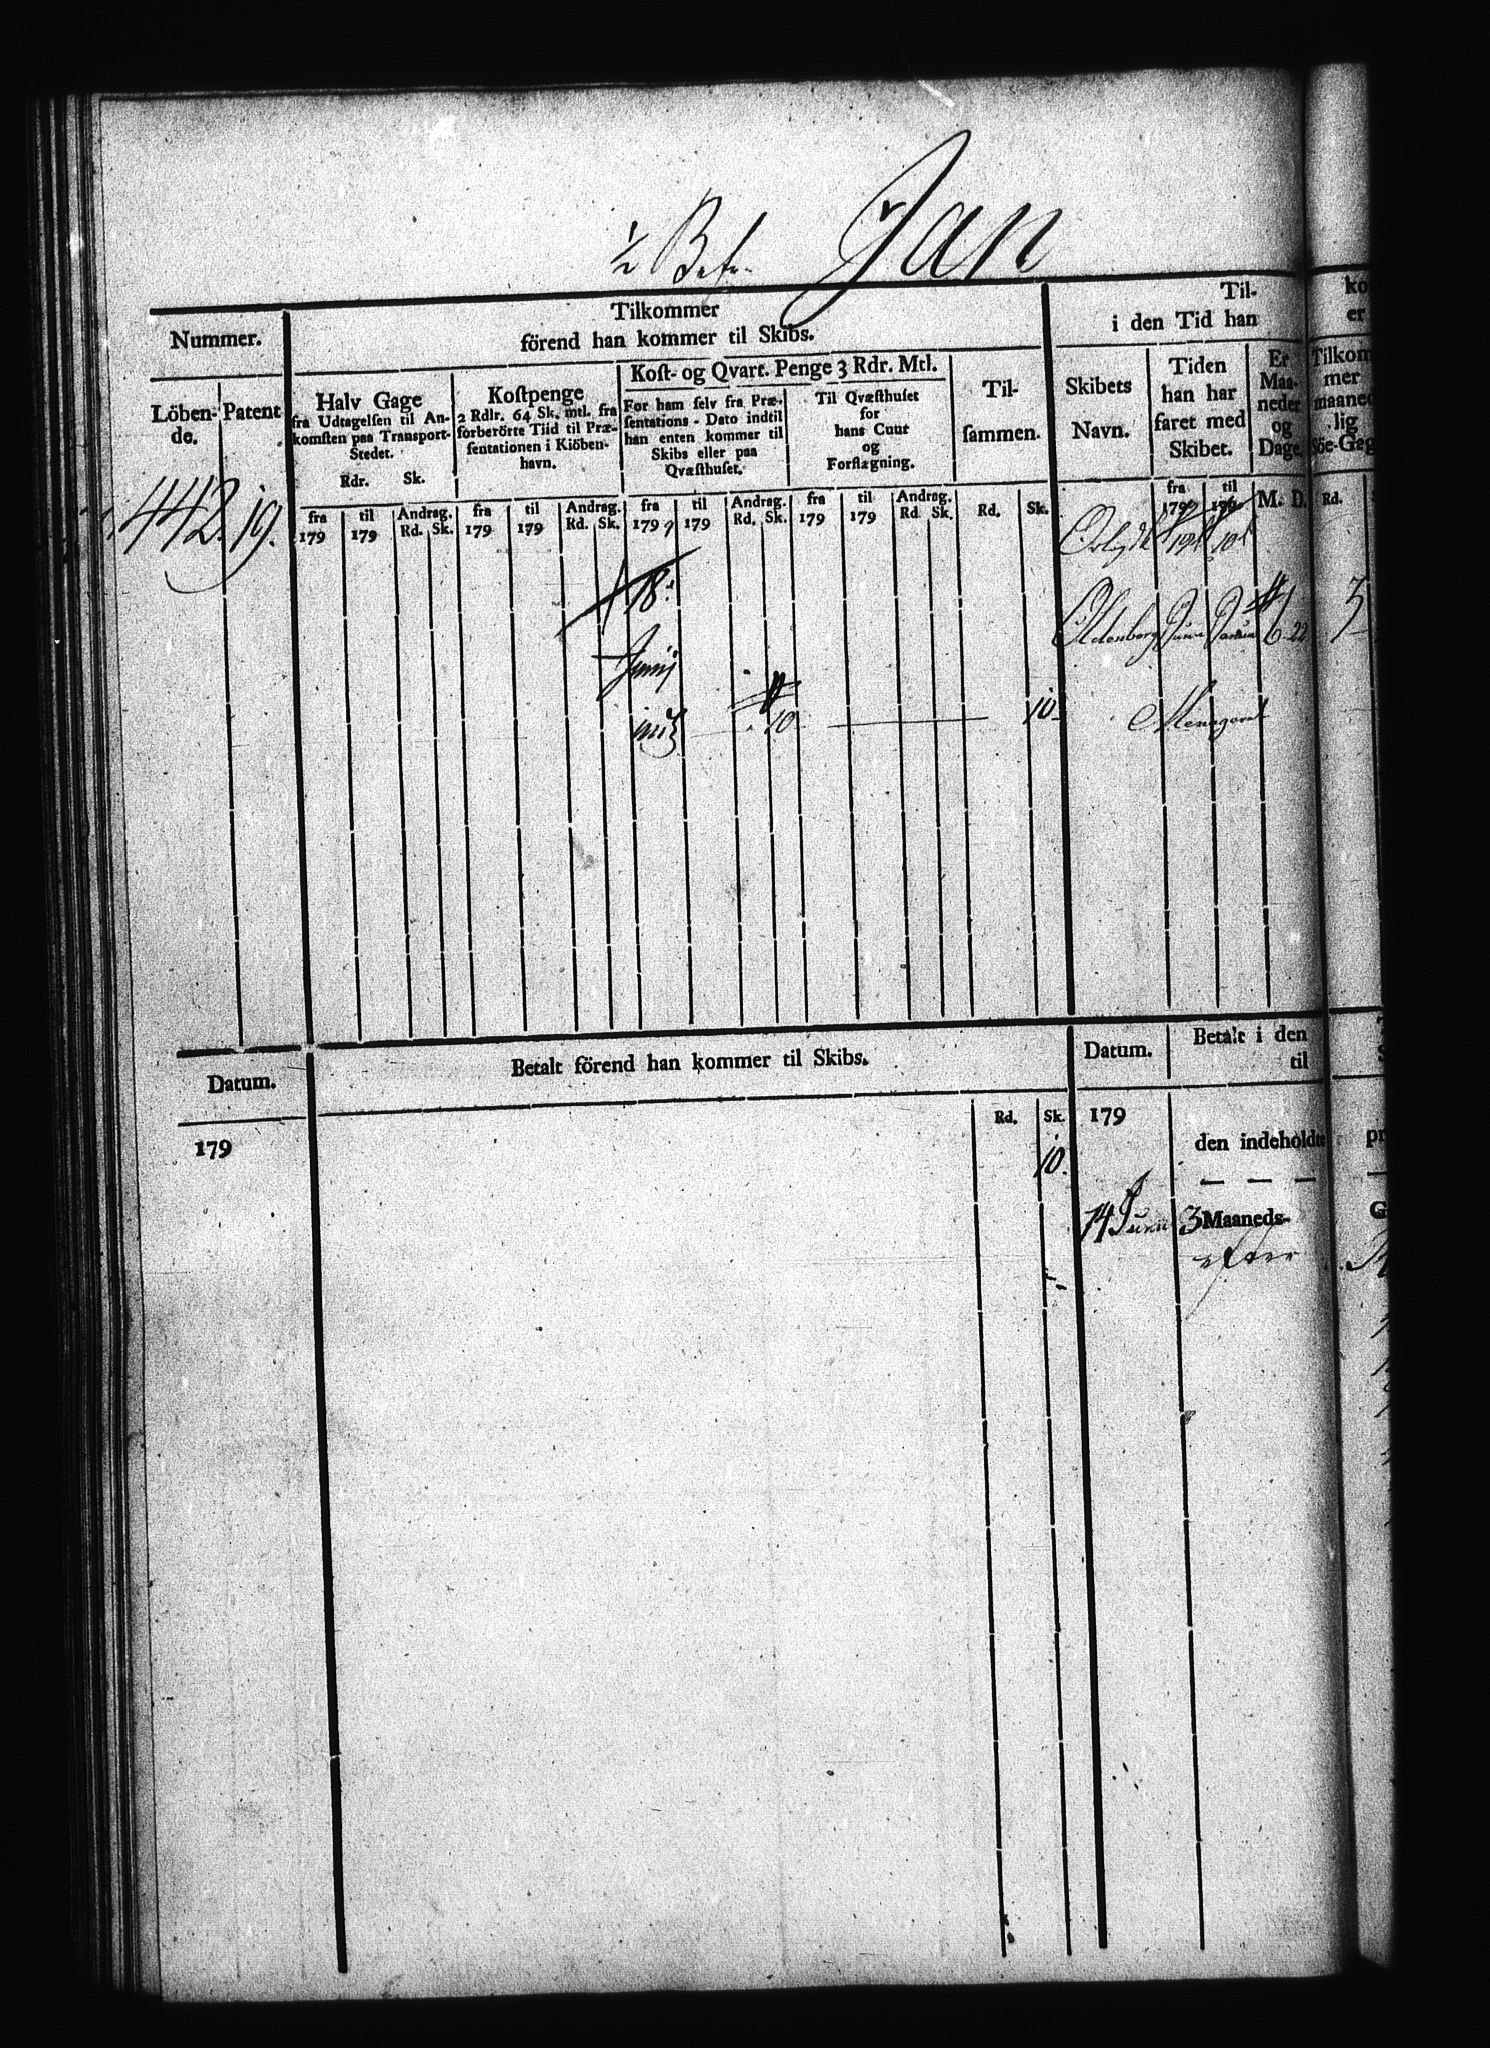 ½ Bef. Jan
Nummer.
Tilkommer
förend han kommer til Skibs.
Til-
i den Tid han
ko
er
Löben-
de.
Patent
Halv Gage
fra Udtagelsen til An-
komsten paa Transport-
Stedet.
Rdr. Sk.
Kostpenge
2 Rdlr. 64 Sk. mtl. fra
forberörte Tiid til Præ-
sentationen i Kiöben-
havn.
Kost- og Qvart. Penge 3 Rdr. Mtl.
For ham selv fra Præ-
sentations-Dato indtil
han enten kommer til
Skibs eller paa
Qvæsthuset.
Til Qvæsthuset
for
hans Cuur
og
Forflægning.
Til-
sammen.
Skibets
Navn.
Tiden
han har
faret med
Skibet.
Er
Maa-
neder
og
Dage.
Tilkom
mer
maaned
lig
Söe-Gag
fra 179 til 179 Andrag. Rd. Sk. fra 179 til 179 Andrag. Rd. Sk. fra 1799 til 179 Andrag. Rd. Sk. fra 179 til 179 Andrag. Rd. Sk. Rd. Sk. fra 179 til 179 M. D. Rd.
442. 19.
18
Junij 
10 10
Oldenborg Junii Januar 6 22 3
Datum.
Betalt förend han kommer til Skibs.
Datum.
Betalt i den
til
179
Rd. Sk.
10.
179
den indeholdte
14 Junii 3 Maaneds-
efter